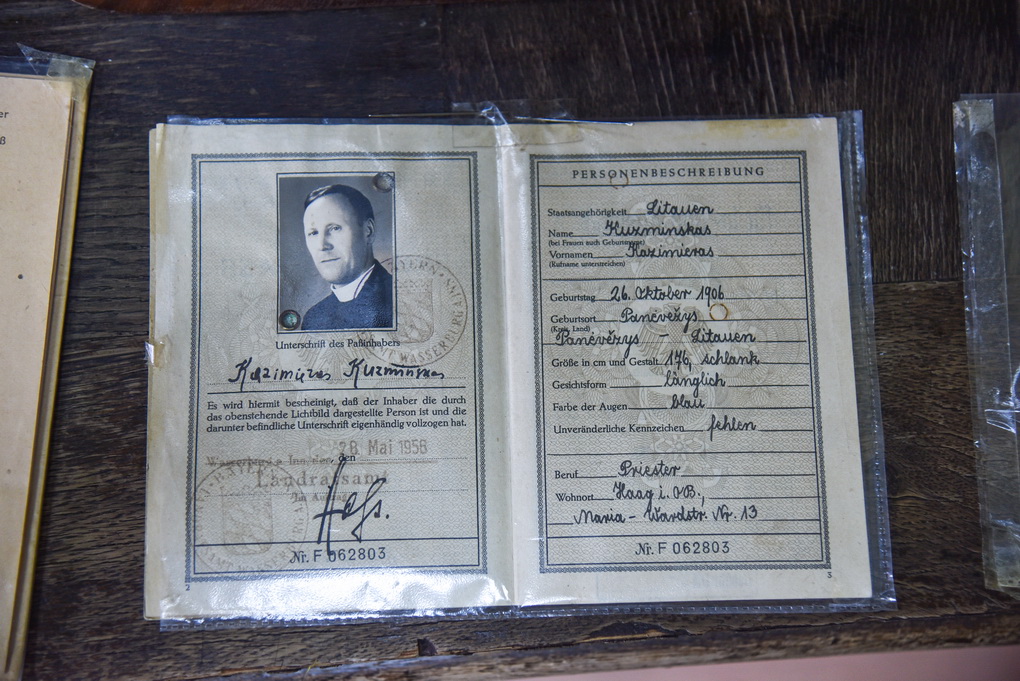 er
ß
BAYERN
LANDRATSAMT WASSERBURG
Unterschrift des Paßinhabers
Kazimieras Kuzminskas
Es wird hiermit bescheinigt, daß der Inhaber die durch
das obenstehende Lichtbild dargestellte Person ist und die
darunter befindliche Unterschrift eigenhändig vollzogen hat.
den 28. Mai 1956
Landratsamt
Im Auftrag
Nr. F 062803
2
PERSONENBESCHREIBUNG
Staatsangehörigkeit Litauen
Name Kuzminskas
(bei Frauen auch Geburtsname)
Vornamen Kazimieras
(Rufname unterstreichen)
Geburtstag 26. Oktober 1906
Geburtsort Panevėžys
(Kreis, Land)
Panevėžys - Litauen
Größe in cm und Gestalt 176, schlank
Gesichtsform länglich
Farbe der Augen blau
Unveränderliche Kennzeichen fehlen
Beruf Priester
Wohnort Haag i. OB.,
Maria-Wardstr. Nr. 13
Nr. F 062803
3